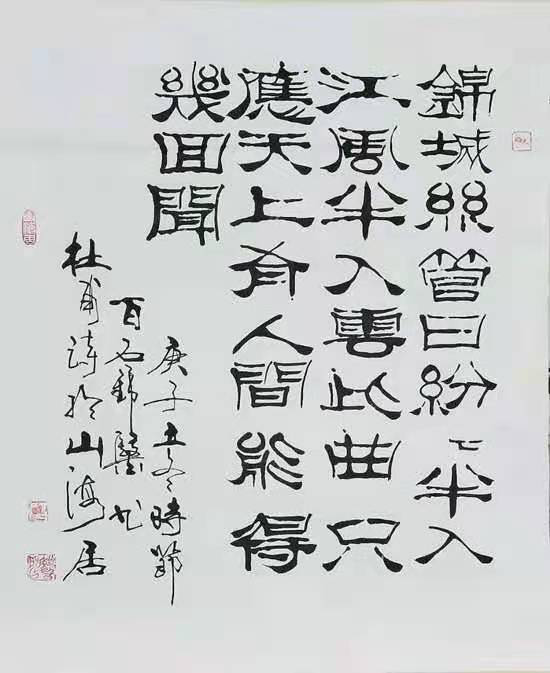 錦城絲管日紛〻半入
江風半入雲此曲只
應天上有人間能得
幾回聞
庚子立冬時節
百石錦
杜甫詩於山海居